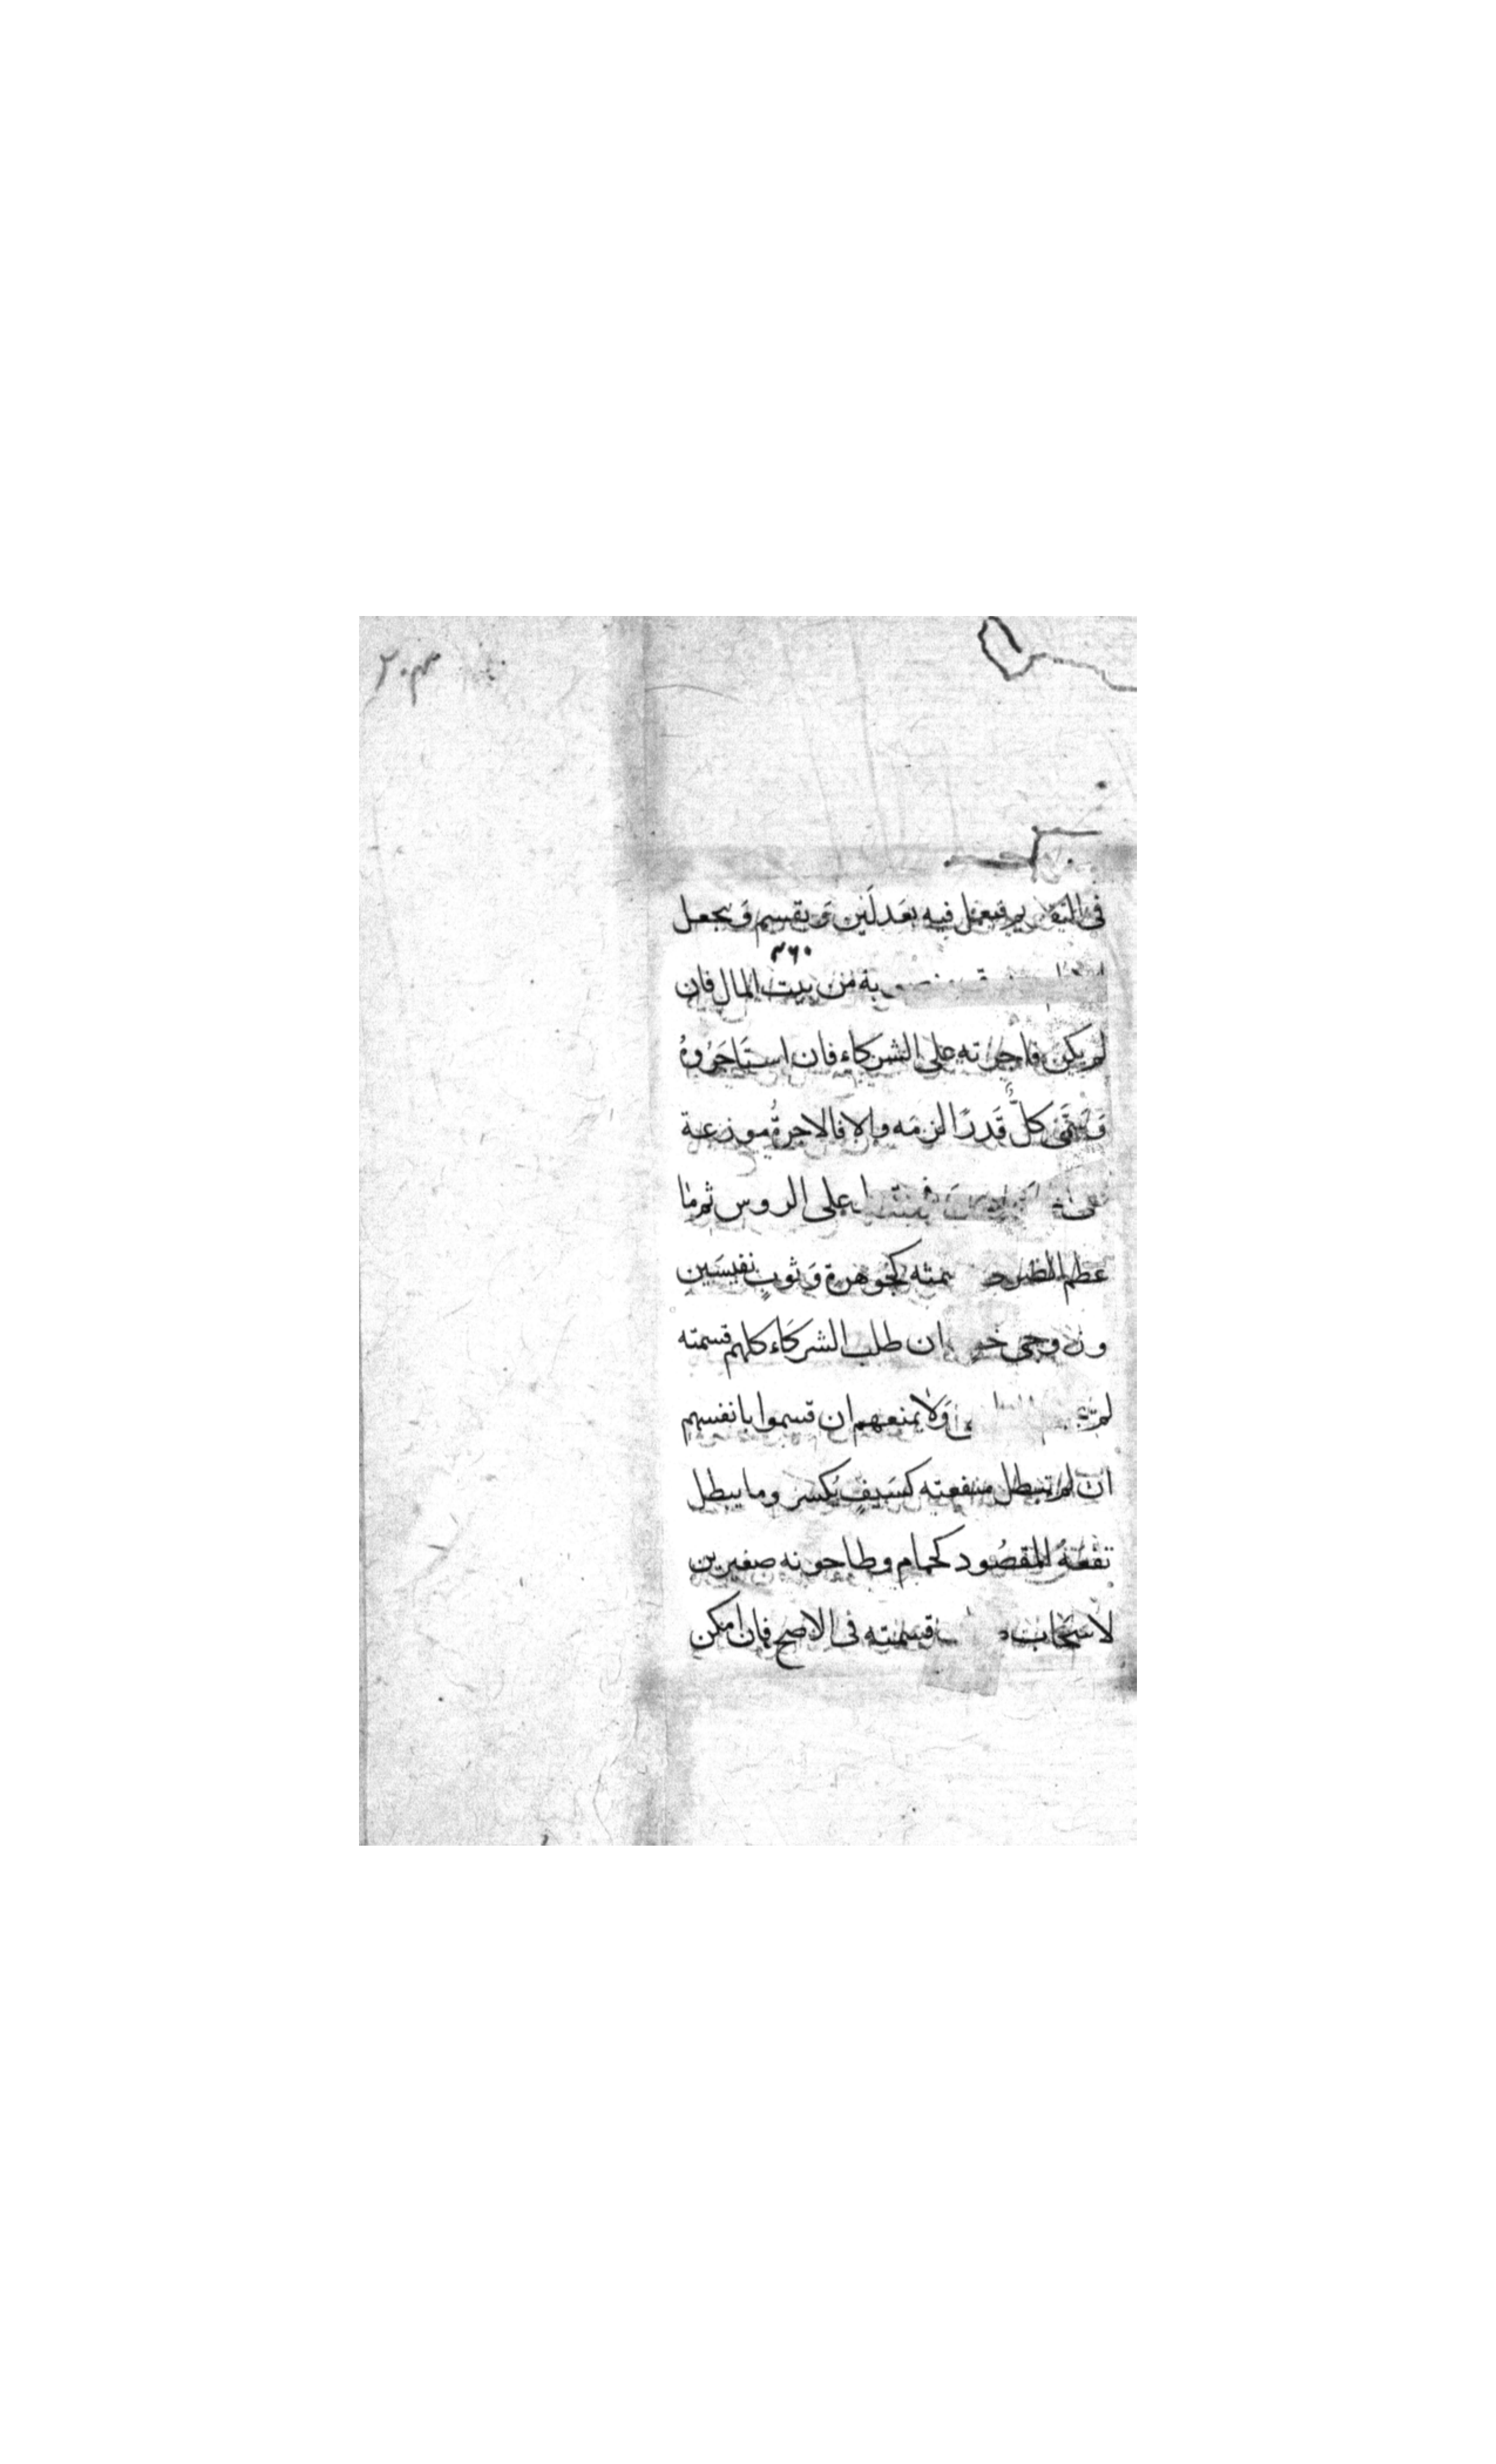 ٢٠٣
فى التقويم فيعمل فيه بعدلين و يقسم و يجعل
٣٦٠
من بيت المال فان
لم يكن فاجرته على الشركاء فان استاجروه
وسمى كل قدرا لزمه والا فالاجرة موزعة
على على الروس ثم ما
عظم الضرر كجوهرة و ثوب نفيسين
و زوجى خف ان طلب الشركاء كلهم قسمته
لم ولا يمنعهم ان قسموا بانفسهم
ان لم تبطل منفعته كسيف يكسر وما يبطل
نفعه المقصود كحمام وطاحونه صغيرين
لا قسمته فى الاصح فان امكن